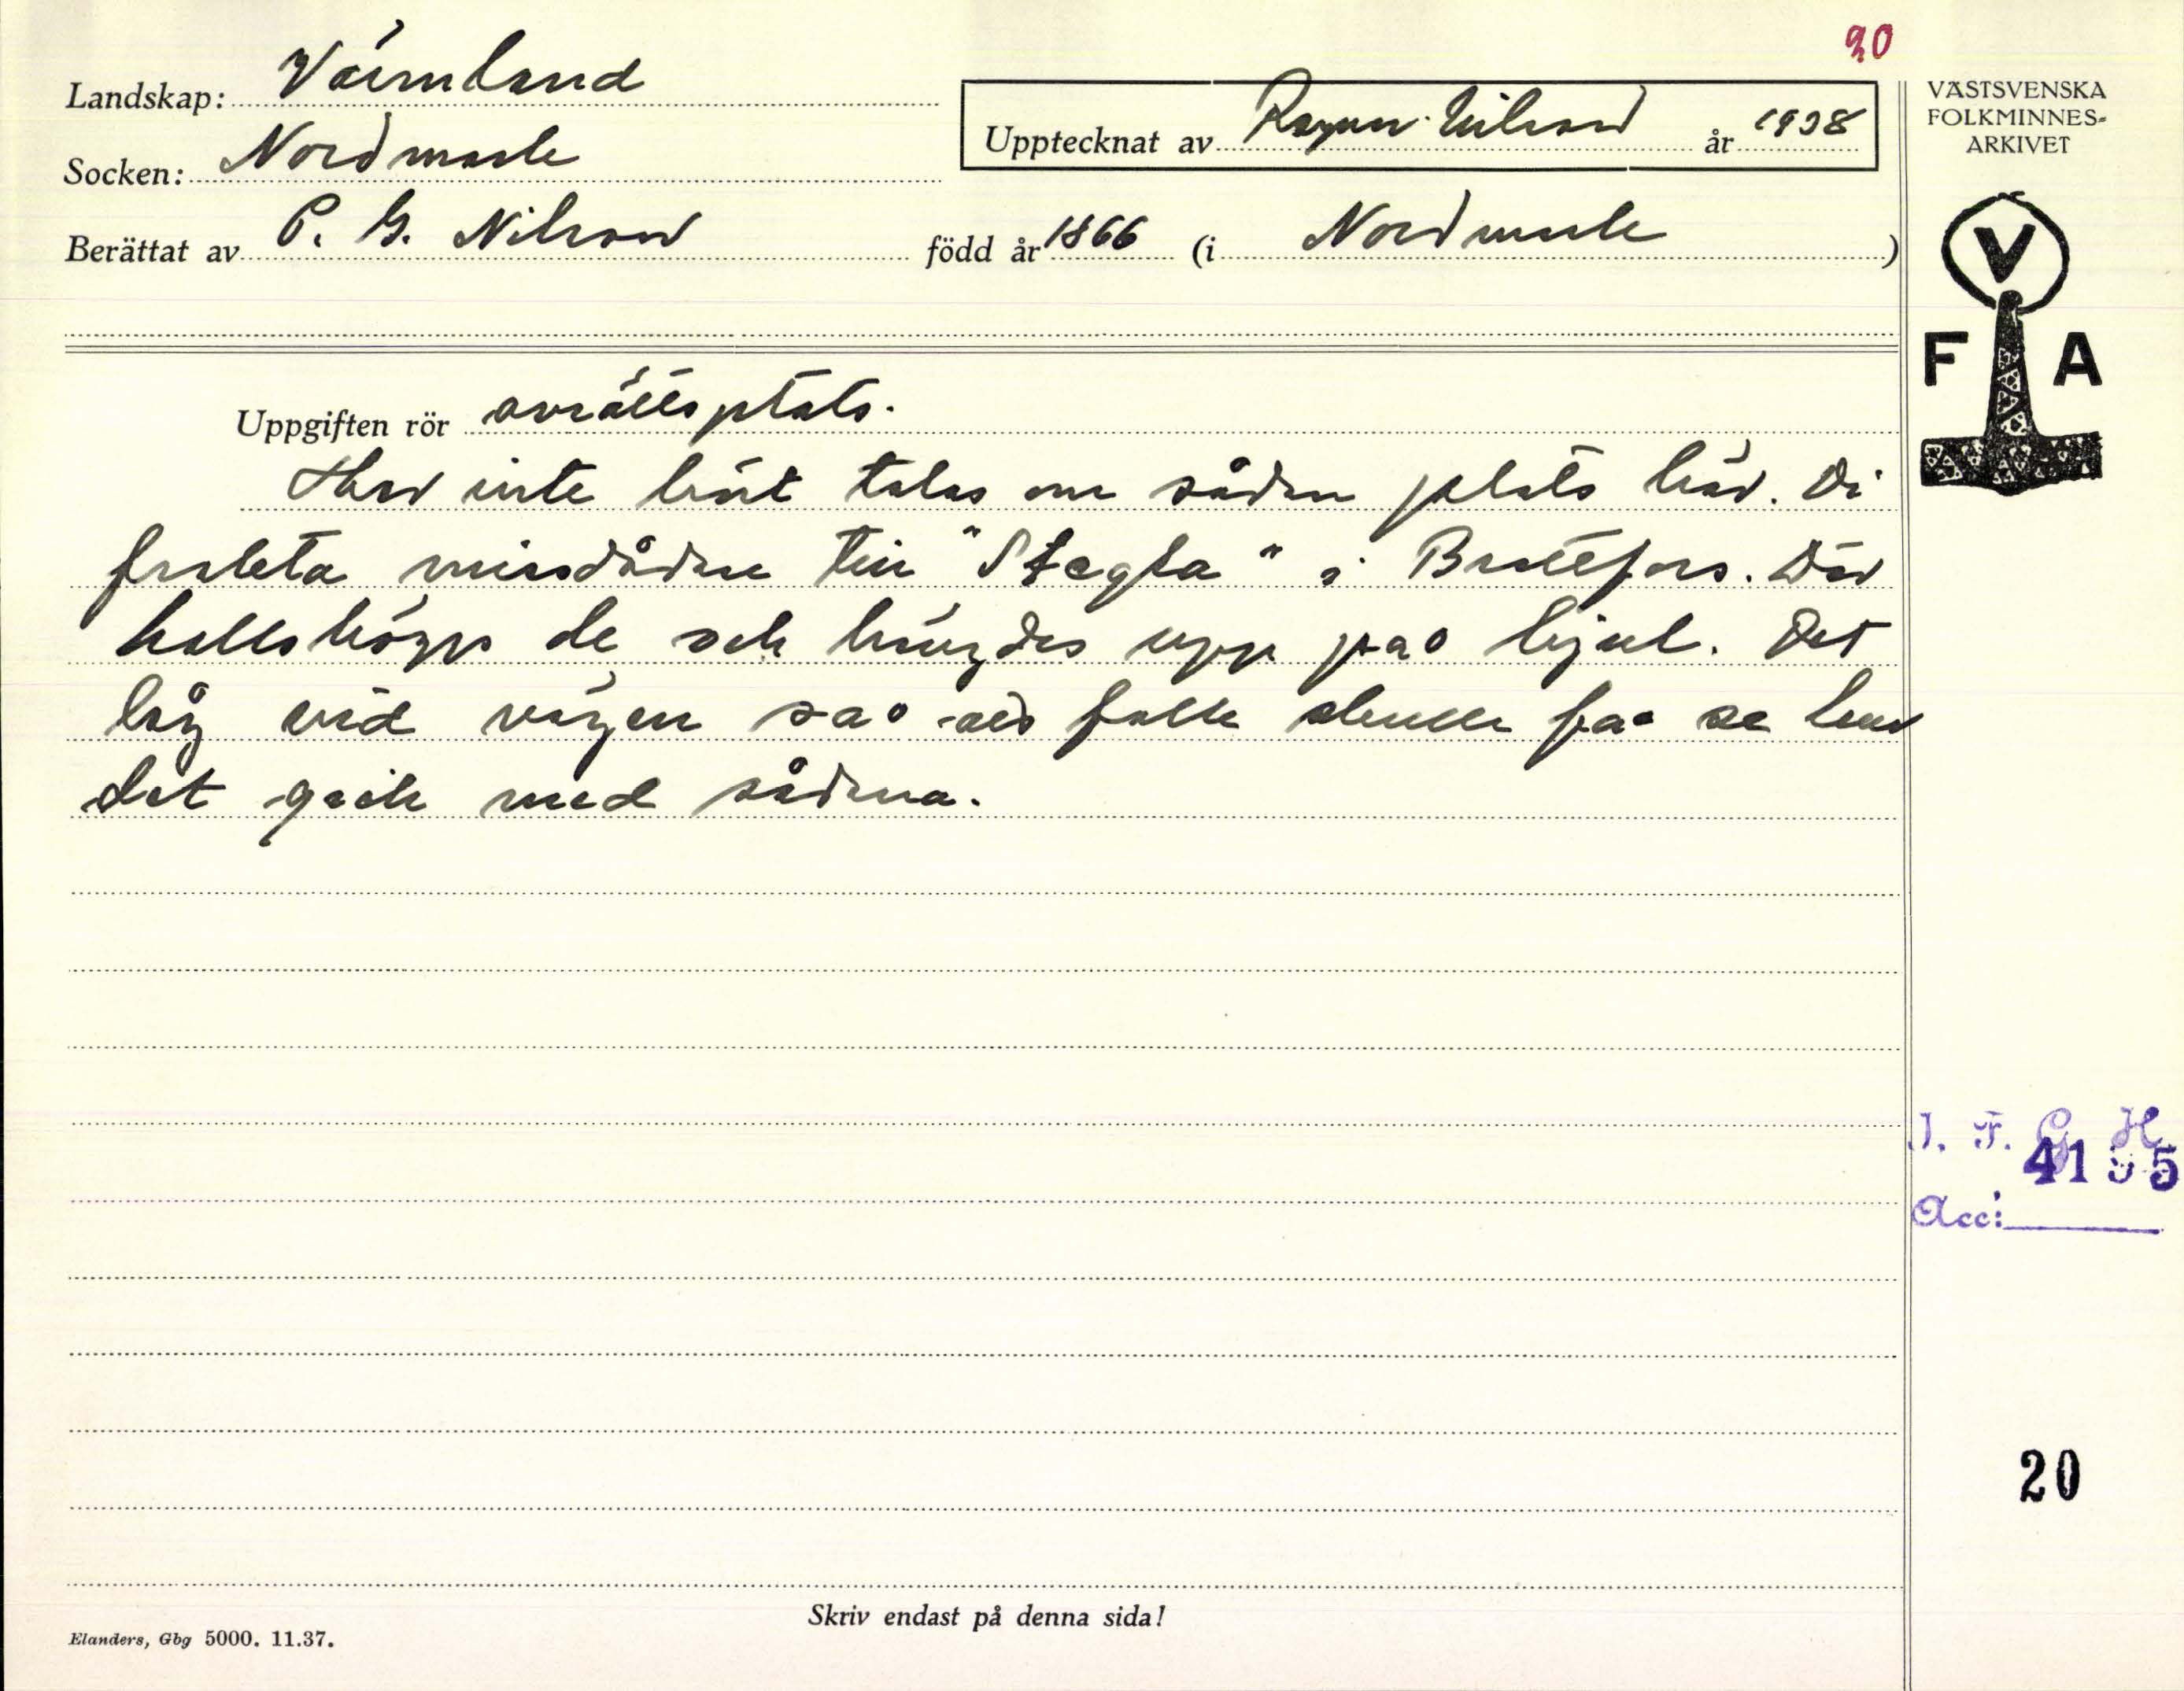 20
Landskap: Värmland
Upptecknat av Ragnar Nilsson år 1938
VÄSTSVENSKA
FOLKMINNES-
ARKIVET
Socken: Nordmark
Berättat av P. G. Nilsson född år 1866 (i Nordmark)
V
F A
Uppgiften rör avrättsplats.
Har inte hört talas om sådan plats här. Di
frakta missdådare till "Stegla" i Brattfors. Där
halshöggs de och hängdes upp på hjul. Det
låg vid vägen så att folk skulle få se hur
det gick med sådana.
I. F. G H
4155
Acc:
20
Skriv endast på denna sida!
Elanders, Gbg 5000. 11.37.